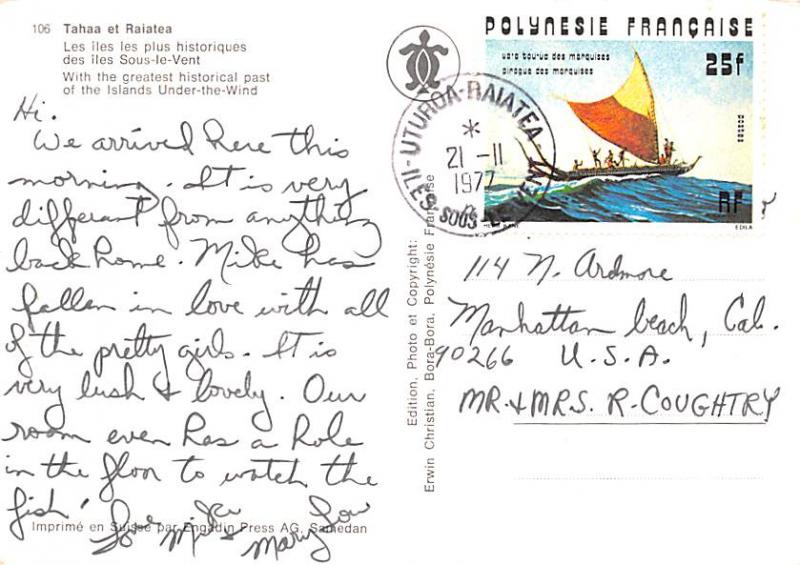 106 Tahaa et Raiatea
Les îles les plus historiques
des îles Sous-le-Vent
With the greatest historical past
of the Islands Under-the-Wind
Hi.
We arrived here this
morning. It is very
different from anything
back home. Mike has
fallen in love with all
of the pretty girls. It is
very lush & lovely. Our
room even has a hole
in the floor to watch the
fish!
Love Mike &
Mary Lou
Imprimé en Suisse par Engadin Press AG, Samedan
Edition, Photo et Copyright:
Erwin Christian, Bora-Bora, Polynésie Française
UTUROA-RAIATEA
*
21 -11
1977
ILES-SOUS-LE-VENT
POLYNESIE FRANÇAISE
25f
pirogue des marquises
postes
RF
EDILA
114 N. Ardmore
Manhattan beach, Cal.
90266 U.S.A.
MR.&MRS. R-COUGHTRY